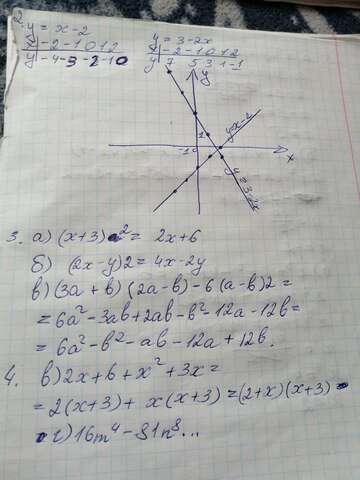 2. y = x - 2
x -2 -1 0 1 2
y -4 -3 -2 -1 0
y = 3 - 2x
x -2 -1 0 1 2
y 7 5 3 1 -1
y
1
-1 0
x
y=x-2
y=3-2x
3. а) (x+3)2 = 2x+6
б) (2x-y)2 = 4x-2y
в) (3a+b)(2a-b)-6(a-b)2 =
= 6a²-3ab+2ab-b²-12a-12b=
= 6a²-b²-ab-12a+12b.
4. в) 2x+6+x²+3x=
= 2(x+3)+x(x+3)=(2+x)(x+3)
г) 16m⁴-81n⁸...